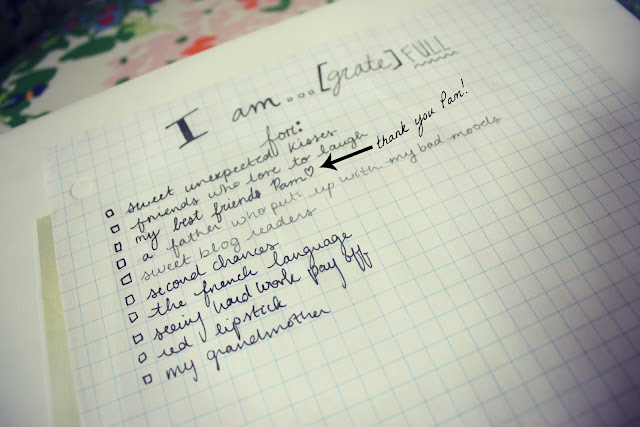 I am...[grate]FULL
for:
sweet unexpected kisses
friends who love to laugh
my best friends Pam♡
thank you Pam!
a father who puts up with my bad moods
sweet blog readers
second chances
the french language
seeing hard work pay off
red lipstick
my grandmother